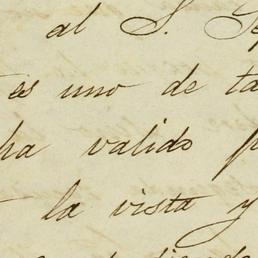 al S.
es uno de
ha valido
la vista y